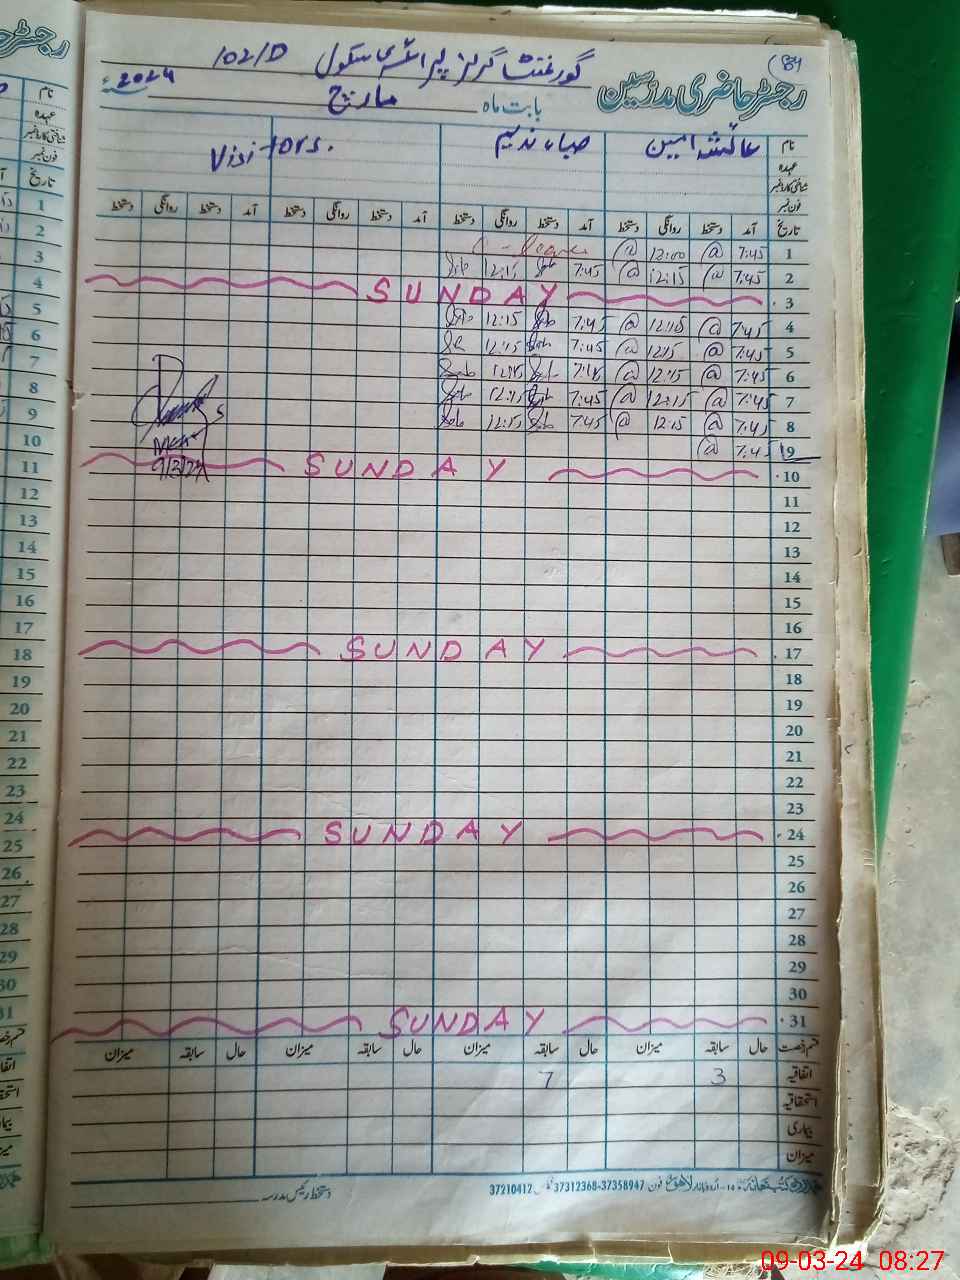 84
گورنمنٹ گرلز پرائمری سکول 102/D
رجسٹر حاضری مدرسین
بابت ماہ مارچ 2024ء
نام عائشہ امین صباء ندیم Visitors.
عہدہ
شناختی کارڈ نمبر
فون نمبر
تاریخ آمد دستخط روانگی دستخط آمد دستخط روانگی دستخط آمد دستخط روانگی دستخط آمد دستخط روانگی دستخط
1 7:45 @ 12:00 @
2 7:45 @ 12:15 @ 7:45 12:15
3 SUNDAY
4 7:45 @ 12:15 @ 7:45 12:15
5 7:45 @ 12:15 @ 7:45 12:15
6 7:45 @ 12:15 @ 12:15
7 7:45 @ 12:15 @ 7:45 12:15
8 7:45 @ 12:15 @ 7:45 12:15
9 7:45 @
9/3/24
10 SUNDAY
11
12
13
14
15
16
17 SUNDAY
18
19
20
21
22
23
24 SUNDAY
25
26
27
28
29
30
31 SUNDAY
قسم رخصت حال سابقہ میزان حال سابقہ میزان حال سابقہ میزان حال سابقہ میزان
اتفاقیہ 3 7
استحقاقیہ
بیماری
میزان
اردو بازار لاہور فون 37312368-37358947 37210412
دستخط رئیس مدرسہ
09-03-24 08:27